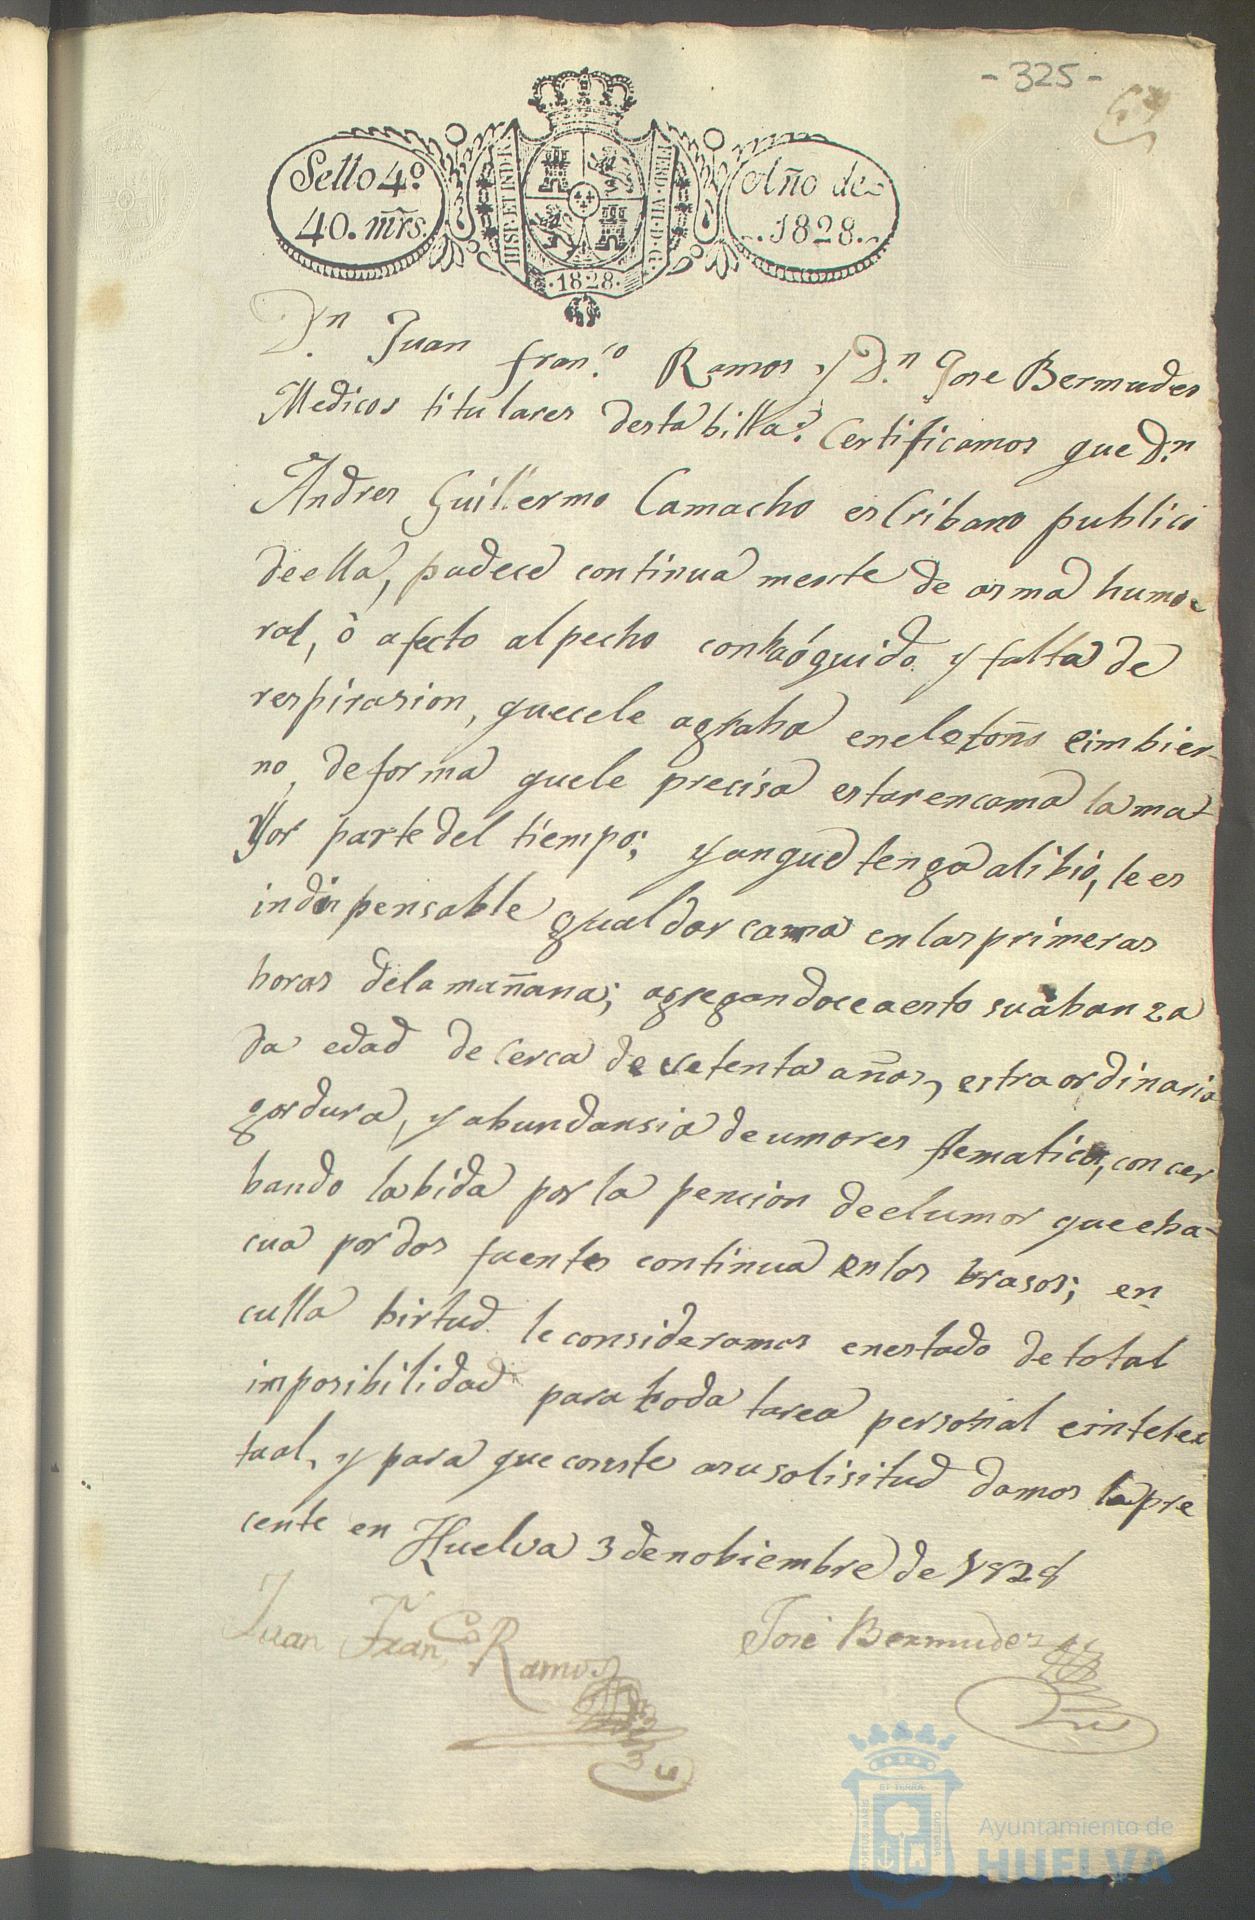 - 325 -
Sello 4º
40. mrs.
HISP. ET IND. R.
FERD. VII. D. G.
1828.
Año de
1828.
Dn. Juan Franco. Ramos y Dn. Jose Bermudes
Medicos titulares desta billa: Certificamos que Dn
Andres Guillermo Camacho esCribano publico
de ella, padece continua mente de asma humo
ral, ò afecto al pecho con y falta de
respirasion, quecele agraba enel otoño eimbier-
no, de forma quele precisa estar encama la ma-
Yor parte del tiempo; y anque tenga alibio, le es
indispensable gualdar cama en las primeras
horas dela mañana; agregandoce a esto su abanza
da edad de cerca de setenta años, estraordinaria
gordura, y abundansia de umores flematicos, concer
bando la bida por la pencion de el umor que eba-
cua por dos fuentes continua en los brasos; en
culla birtud le consideramos enestado de total
imposibilidad para toda tarea personal eintelec
tual, y para que conste asu solisitud damos la pre
cente en Huelva 3 de nobiembre de 1828
Juan Franco. Ramos
José Bermudez
ET TERRÆ
Ayuntamiento de
HUELVA